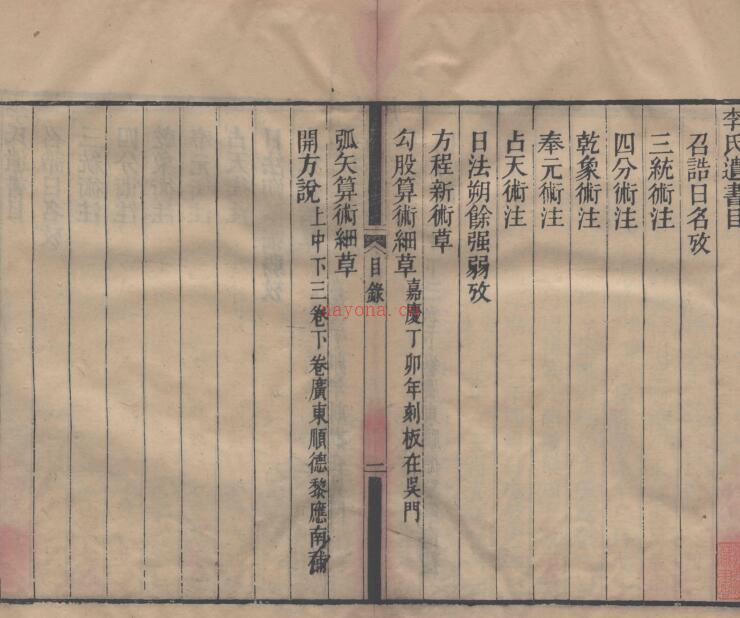 李氏遺書目
召誥日名攷
三統術注
四分術注
乾象術注
奉元術注
占天術注
日法朔餘强弱攷
方程新術草
勾股算術細草嘉慶丁卯年刻板在吳門
目錄
二
弧矢算術細草
開方說上中下三卷下卷廣東順德黎應南補
nayona.cn